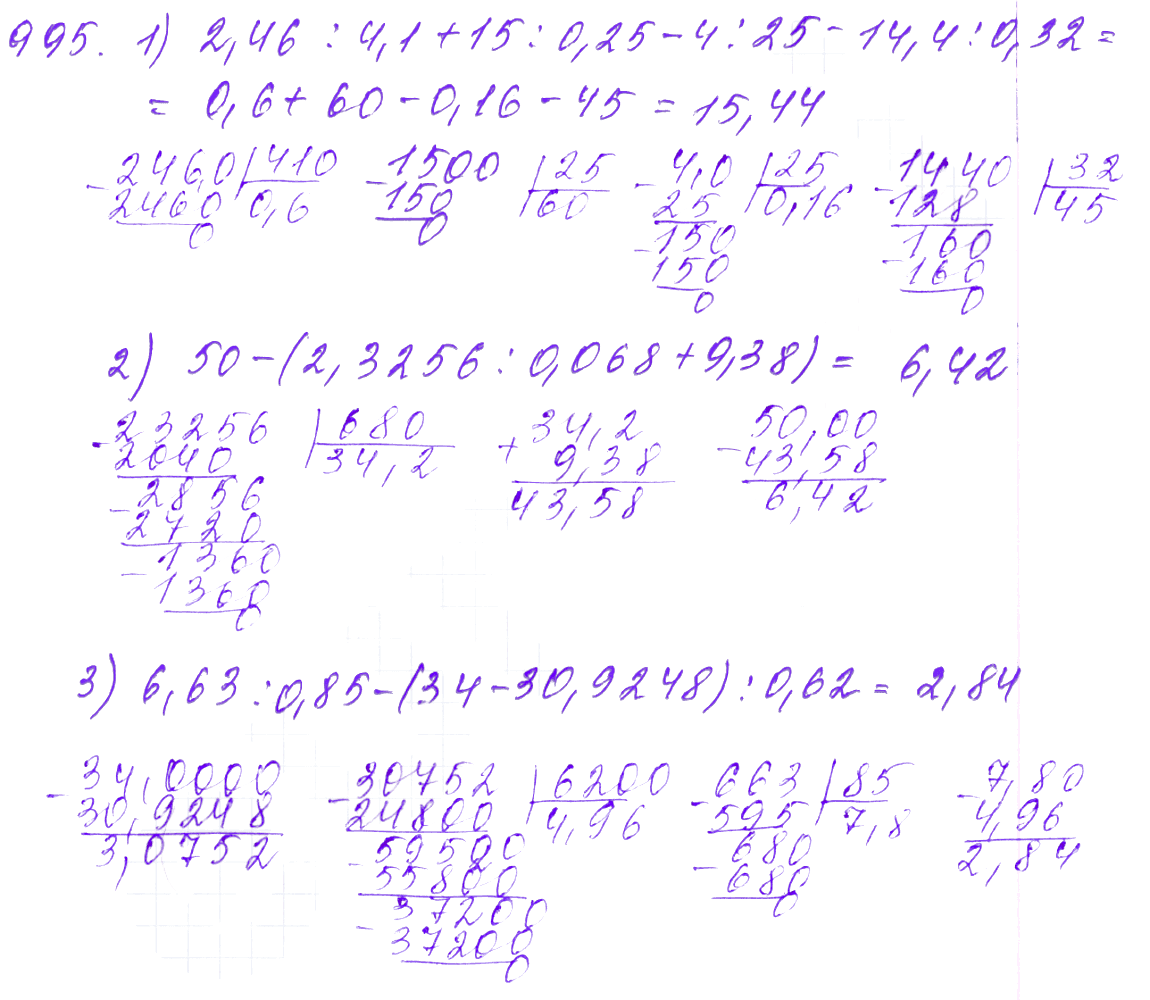 995. 1) 2,46 : 4,1 + 15 : 0,25 - 4 : 25 - 14,4 : 0,32 =
= 0,6 + 60 - 0,16 - 45 = 15,44
- 246,0 | 410 - 1500 | 25 - 4,0 | 25 - 1440 | 32
2460 0,6 150 60 25 0,16 128 45
0 0 - 150 160
150 - 160
0 0
2) 50 - (2,3256 : 0,068 + 9,38) = 6,42
- 23256 | 680 + 34,2 - 50,00
2040 34,2 9,38 43,58
- 2856 43,58 6,42
2720
- 1360
1360
0
3) 6,63 : 0,85 - (34 - 30,9248) : 0,62 = 2,84
- 34,0000 - 30752 | 6200 - 663 | 85 - 7,80
30,9248 24800 4,96 595 7,8 4,96
3,0752 - 59520 680 2,84
55800 - 680
- 37200 0
37200
0